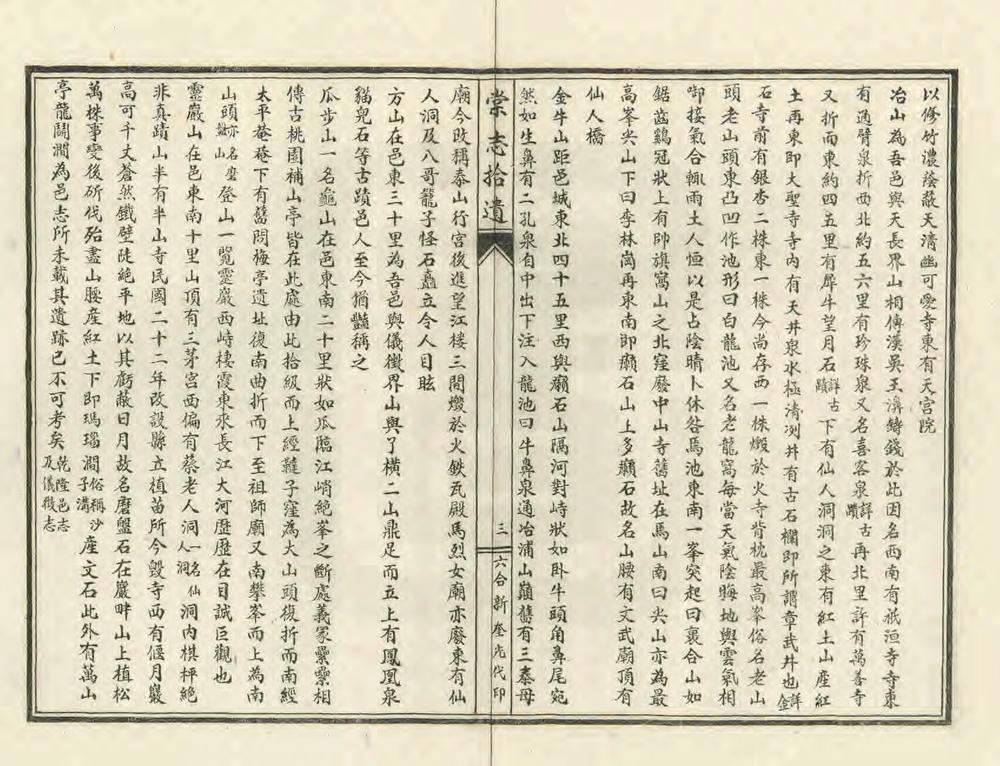 以修竹濃蔭蔽天清幽可愛寺東有天宫院
冶山為吾邑與天長界山相傳漢吳王濞鑄錢於此因名西南有祇洹寺寺東
有通臂泉折西北約五六里有珍珠泉又名喜客泉詳古蹟再北里許有萬善寺
又折而東約四五里有犀牛望月石詳古蹟下有仙人洞洞之東有紅土山產紅
土再東即大聖寺寺内有天井泉水極清冽井有古石欄即所謂章武井也詳金
石寺前有銀杏二株東一株今尚存西一株燬於火寺背枕最高峯俗名老山
頭老山頭東凸凹作池形曰白龍池又名老龍窩每當天氣陰晦地輿雲氣相
啣接氣合輒雨土人恒以是占陰晴卜休咎馬池東南一峯突起曰裹合山如
鋸齒鷄冠狀上有帥旗窩山之北窪廢中山寺舊址在焉山南曰尖山亦為最
高峯尖山下曰李林崗再東南即癩石山上多癩石故名山腰有文武廟頂有
仙人橋
金牛山距邑城東北四十五里西與癩石山隔河對峙狀如卧牛頭角鼻尾宛
然如生鼻有二孔泉自中出下注入龍池曰牛鼻泉通冶浦山巔舊有三泰母
棠志拾遺
三
六合新奎光代印
廟今改稱泰山行宫後進望江樓三間燬於火鉄瓦殿馬烈女廟亦廢東有仙
人洞及八哥籠子怪石矗立令人目眩
方山在邑東三十里為吾邑與儀徵界山與了橫二山鼎足而立上有鳳凰泉
貓兒石等古蹟邑人至今猶豔稱之
瓜步山一名龜山在邑東南二十里狀如瓜臨江峭絶峯之斷處義冢纍纍相
傳古桃園補山亭皆在此處由此拾級而上經韃子窪為大山頭復折而南經
太平菴菴下有舊問梅亭遺址復南曲折而下至祖師廟又南攀峯而上為南
山頭亦名磨盤山登山一覽靈巖西峙棲霞東來長江大河歷歷在目誠巨觀也
靈巖山在邑東南十里山頂有三茅宫西偏有蔡老人洞一名仙人洞洞内棋枰絶
非真蹟山半有半山寺民國二十二年改設縣立植苗所今毁寺西有偃月巖
高可千丈蒼然鐵壁陡絶平地以其虧蔽日月故名磨盤石在巖畔山上植松
萬株事變後斫伐殆盡山腰産紅土下即瑪瑙澗俗稱沙子溝産文石此外有萬山
亭龍鬬澗為邑志所未載其遺跡已不可考矣乾隆邑志及儀徵志